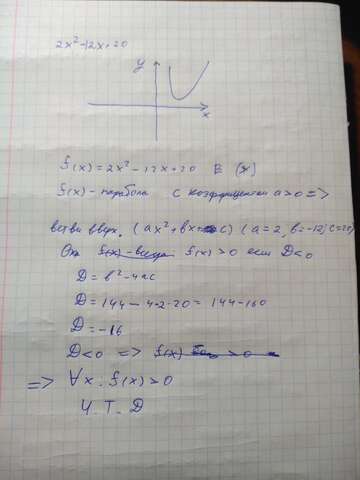 2x²-12x+20
y
x
f(x) = 2x² - 12x + 20 В (x)
f(x) - парабола с коэффициентом a>0 =>
ветви вверх. (ax²+bx+c) (a=2, b=-12, c=20)
f(x) - всегда f(x)>0 если D<0
D = b² - 4ac
D = 144 - 4·2·20 = 144-160
D = -16
D<0 => f(x) >0
=> ∀x. f(x)>0
Ч. Т. Д